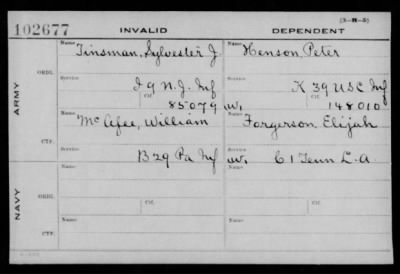 (3-H-5)
102677 INVALID DEPENDENT
Name Tinsman, Sylvester J Name Henson Peter
ARMY
ORIG.
Service I 9 N.J. Inf Service K 39 USC Inf
Ctf. 85079 W. Ctf. 148010
Name McAfee, William Name Forgerson Elijah
CTF.
Service B 29 Pa Inf W. Service C 1 Tenn L.A
NAVY
Name Name
ORIG.
Service Ctf. Service Ctf.
Name Name
CTF.
Service Service